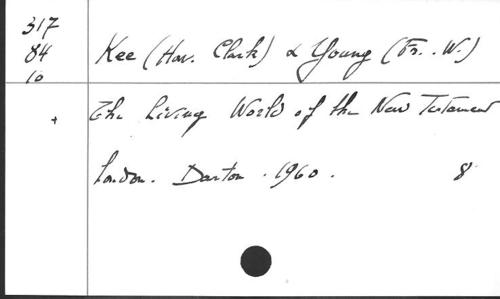 317
84
10
Kee (How. Clark) & Young (Fr. W.)
+ The Living World of the New Testament
London. Darton. 1960. 8